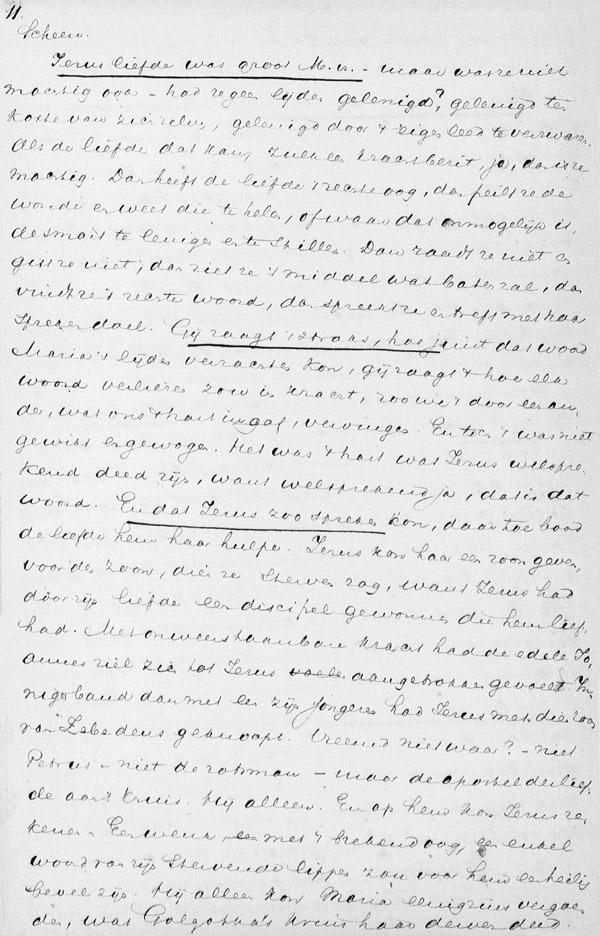 11.
scheen.
Jezus liefde was groot M. vr. - maar was ze niet
machtig ook - had ze geen lijden gelenigd?, gelenigd ten
koste van zich zelve, gelenigd door 't eigen leed te verzwaren.
Als de liefde dat kan, zulk een kracht bezit, ja, dan is ze
machtig. Dan heeft de liefde 't rechte oog, dan peilt ze de
wonde en weet die te helen, of waar dat onmogelijk is,
de smart te lenigen en te stillen. Dan raadt ze niet en
gist ze niet, dan ziet ze 't middel wat baten zal, dan
vindt ze 't rechte woord, dan spreekt ze en treft met haar
spreken doel. Gij vraagt straks, hoe juist dat woord
Maria's lijden verzachten kon, gij vraagt hoe elk
woord verliezen zou in kracht, zoo wij 't door een an-
der, wat ons 't hart ingaf, vervingen. En toch 't was niet
gewikt en gewogen. Het was 't hart wat Jezus welspre-
kend deed zijn, want welsprekend ja, dat is dat
woord. En dat Jezus zoo spreken kon, daartoe bood
de liefde hem haar hulpe. Jezus kon haar een zoon geven,
voor den zoon, dien ze sterven zag, want Jezus had
door zijn liefde een discipel gewonnen die hem lief
had. Met onweerstaanbare kracht had de edele Jo-
annes ziel zich tot Jezus aangetrokken gevoeld. In-
niger band dan met een zijn jongeren had Jezus met dien zoon
van Zebedeus geknoopt. Vreemd niet waar? - niet
Petrus - niet de rotsman - maar de apostel der lief-
de aan 't kruis. Hij alleen. En op hem kon Jezus re-
kenen. Een wenk met 't brekend oog, een enkel
woord van zijn stervende lippen zou voor hem een heilig
bevel zijn. Hij alleen kon Maria eenigzins vergoe-
den, wat Golgotha's kruis haar derven deed.